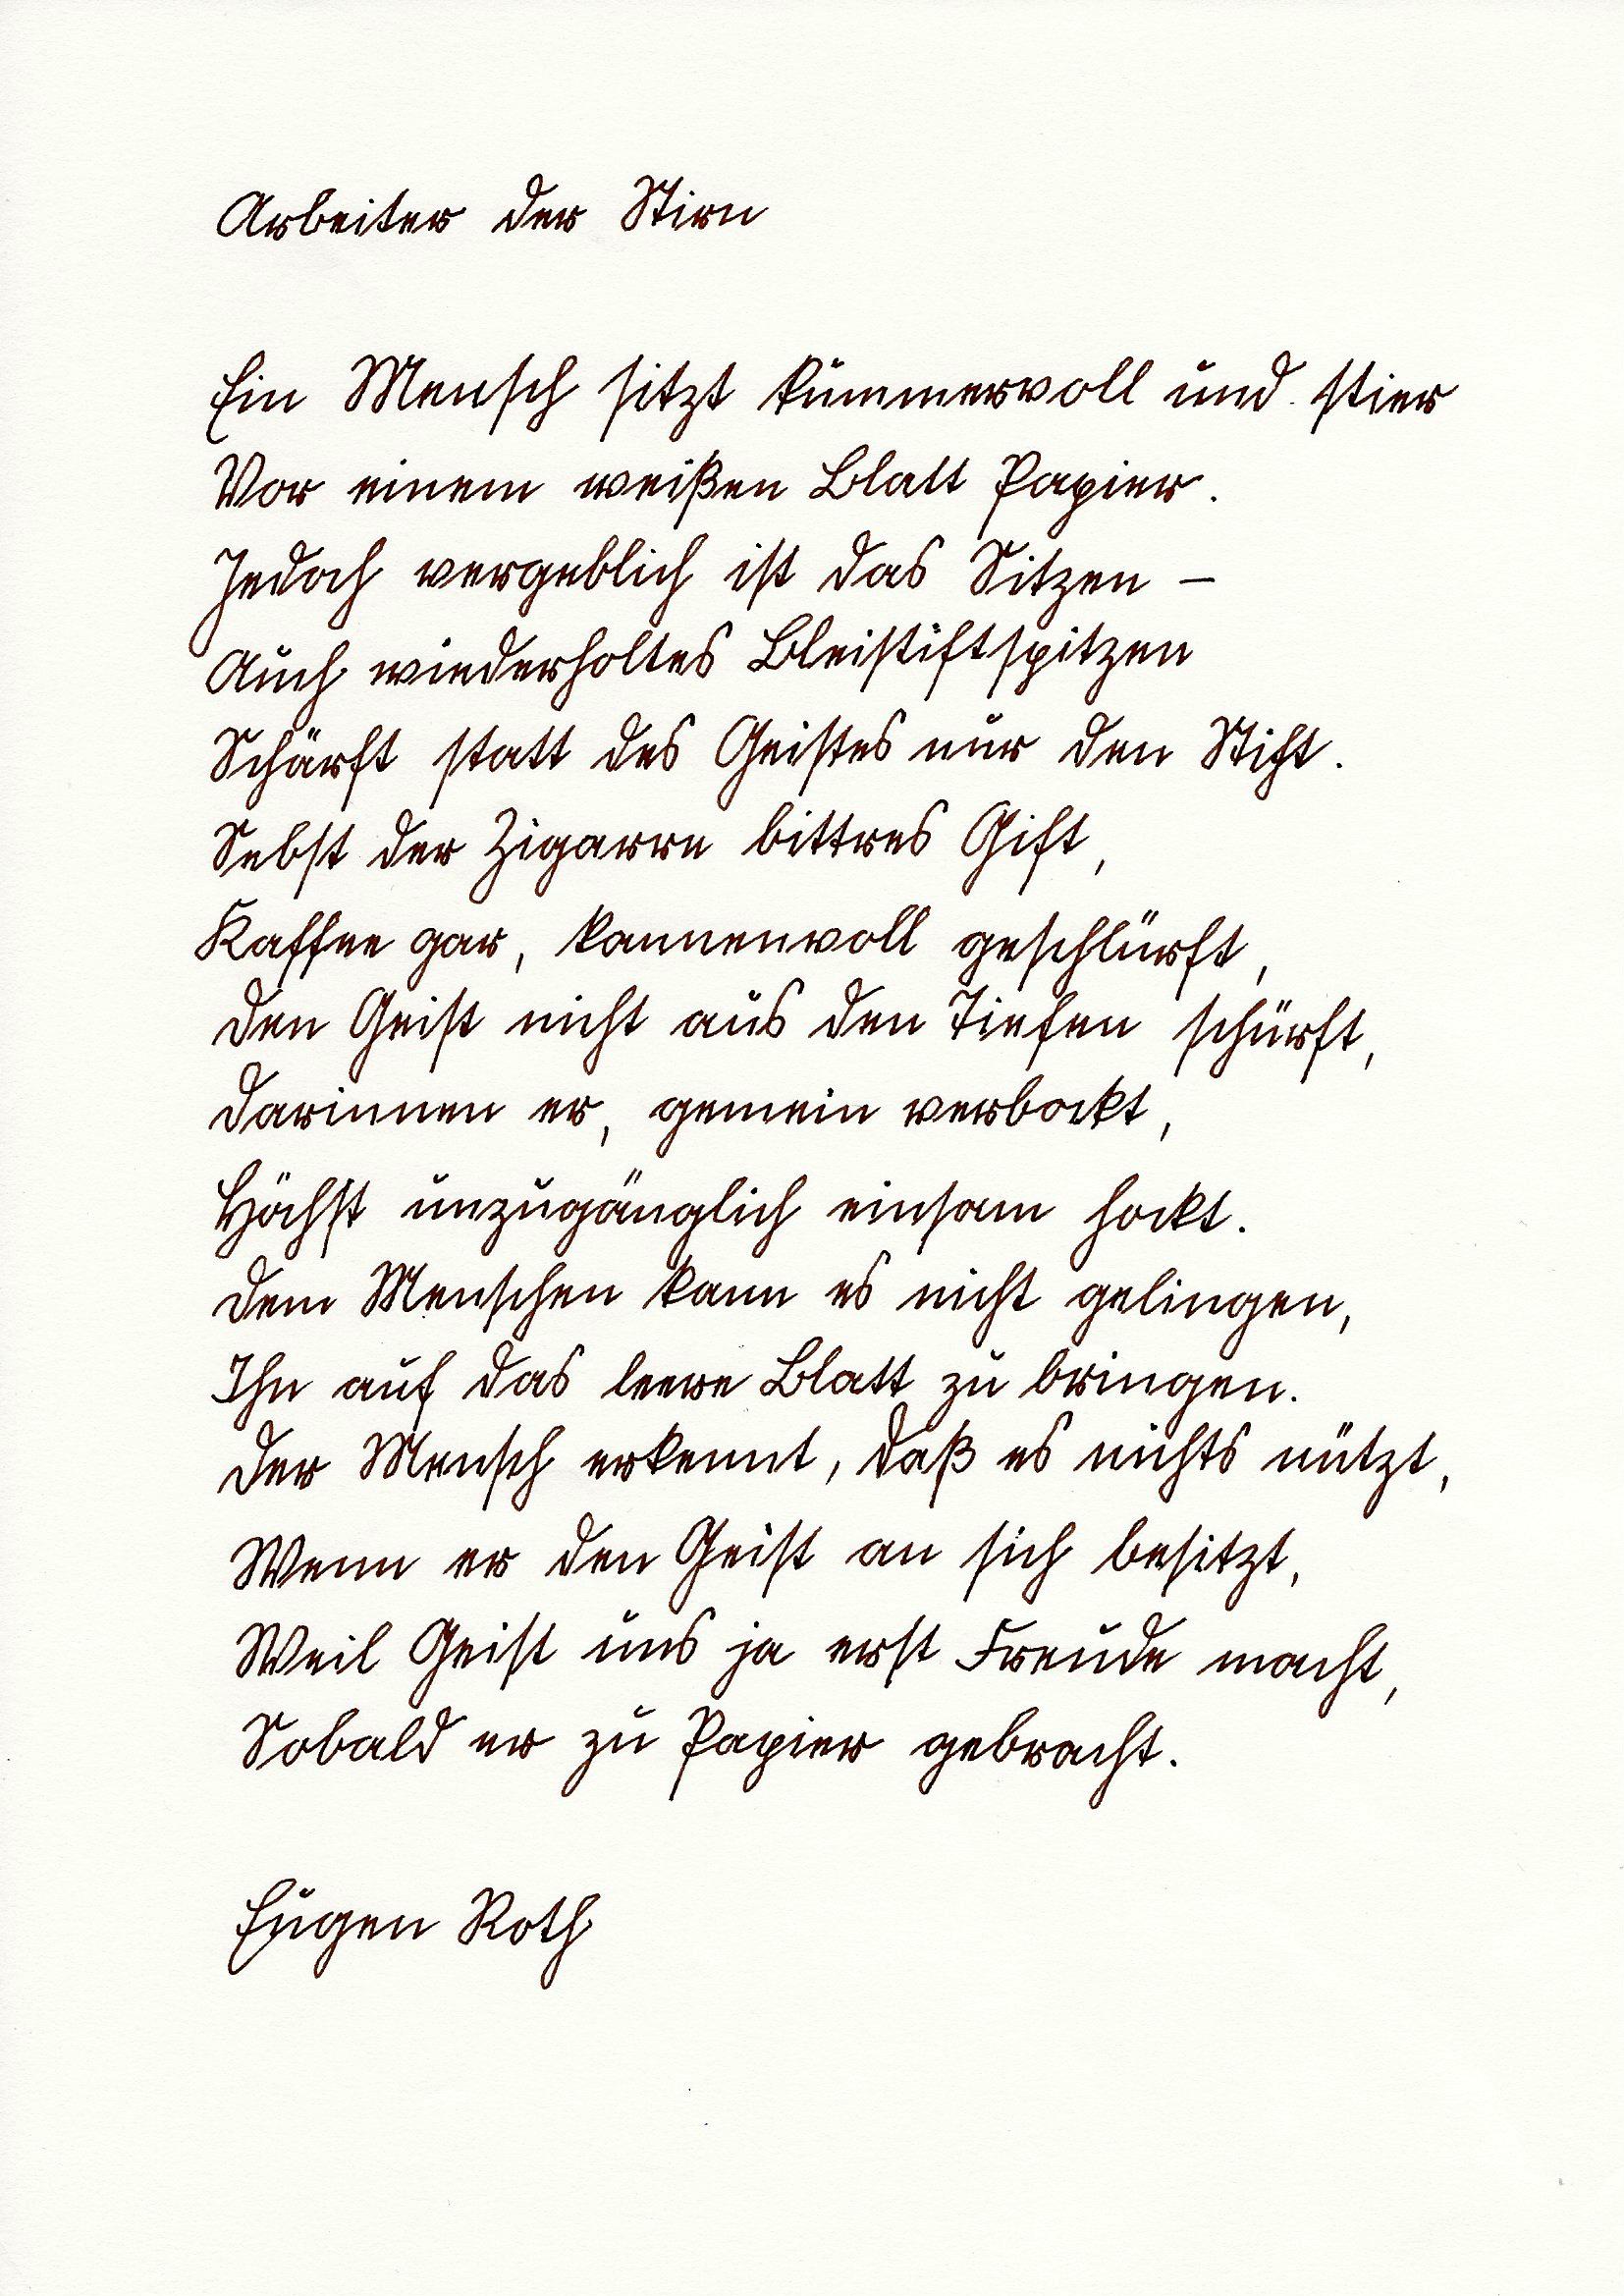 Arbeiter der Stirn
Ein Mensch sitzt kümmervoll und stier
Vor einem weißen Blatt Papier.
Jedoch vergeblich ist das Sitzen –
Auch wiederholtes Bleistiftspitzen
Schärft statt des Geistes nur den Stift.
Sebst der Zigarre bittres Gift,
Kaffee gar, kannenvoll geschlürft,
Den Geist nicht aus den Tiefen schürft,
Darinnen er, gemein verbockt,
Höchst unzugänglich einsam hockt.
Dem Menschen kann es nicht gelingen,
Ihn auf das leere Blatt zu bringen.
Der Mensch erkennt, daß es nichts nützt,
Wenn er den Geist an sich besitzt,
Weil Geist uns ja erst Freude macht,
Sobald er zu Papier gebracht.
Eugen Roth